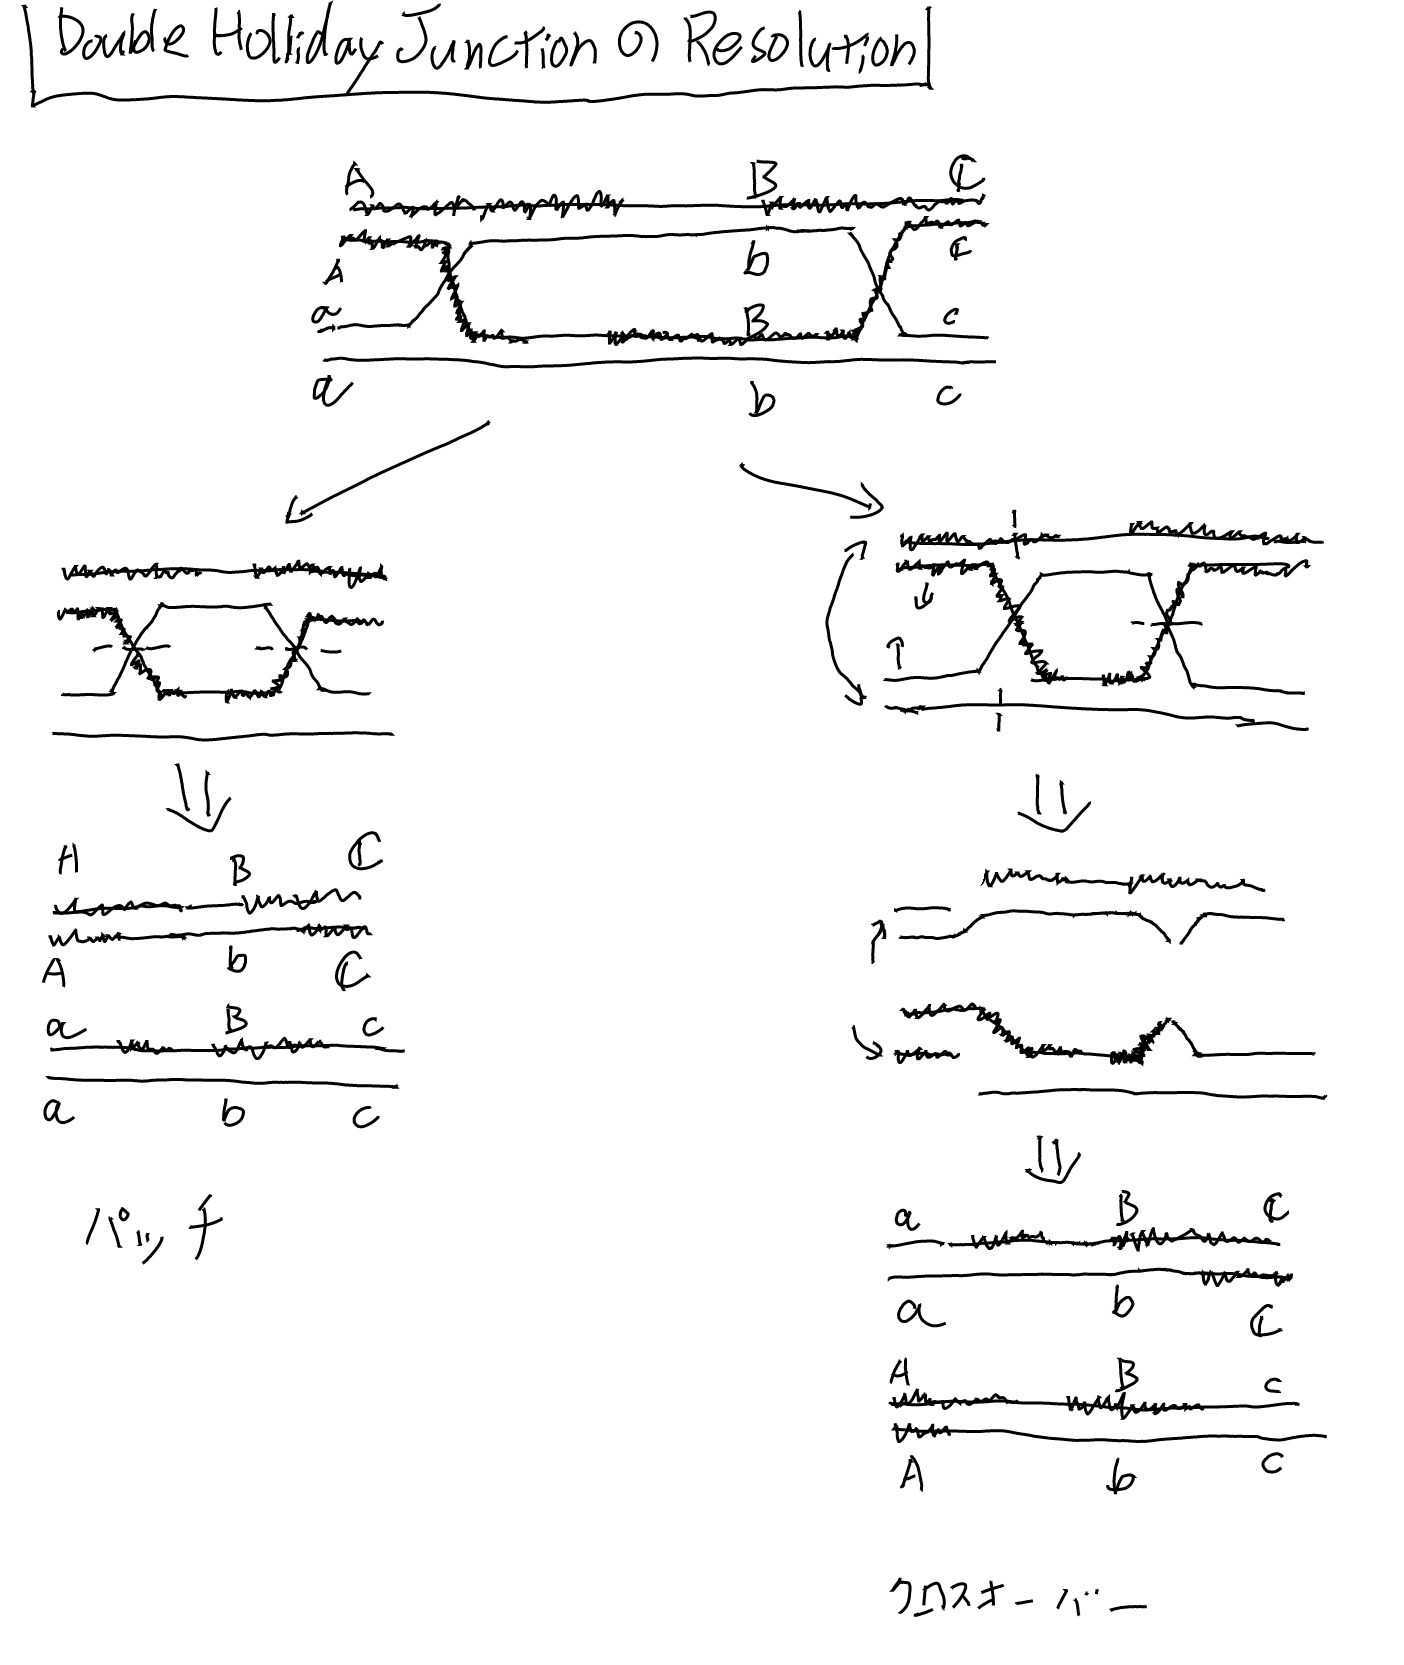 Double Holliday Junction の Resolution
A B C
A b C
a B c
a b c
A B C
A b C
a B c
a b c
パッチ
a B C
a b C
A B c
A b c
クロスオーバー